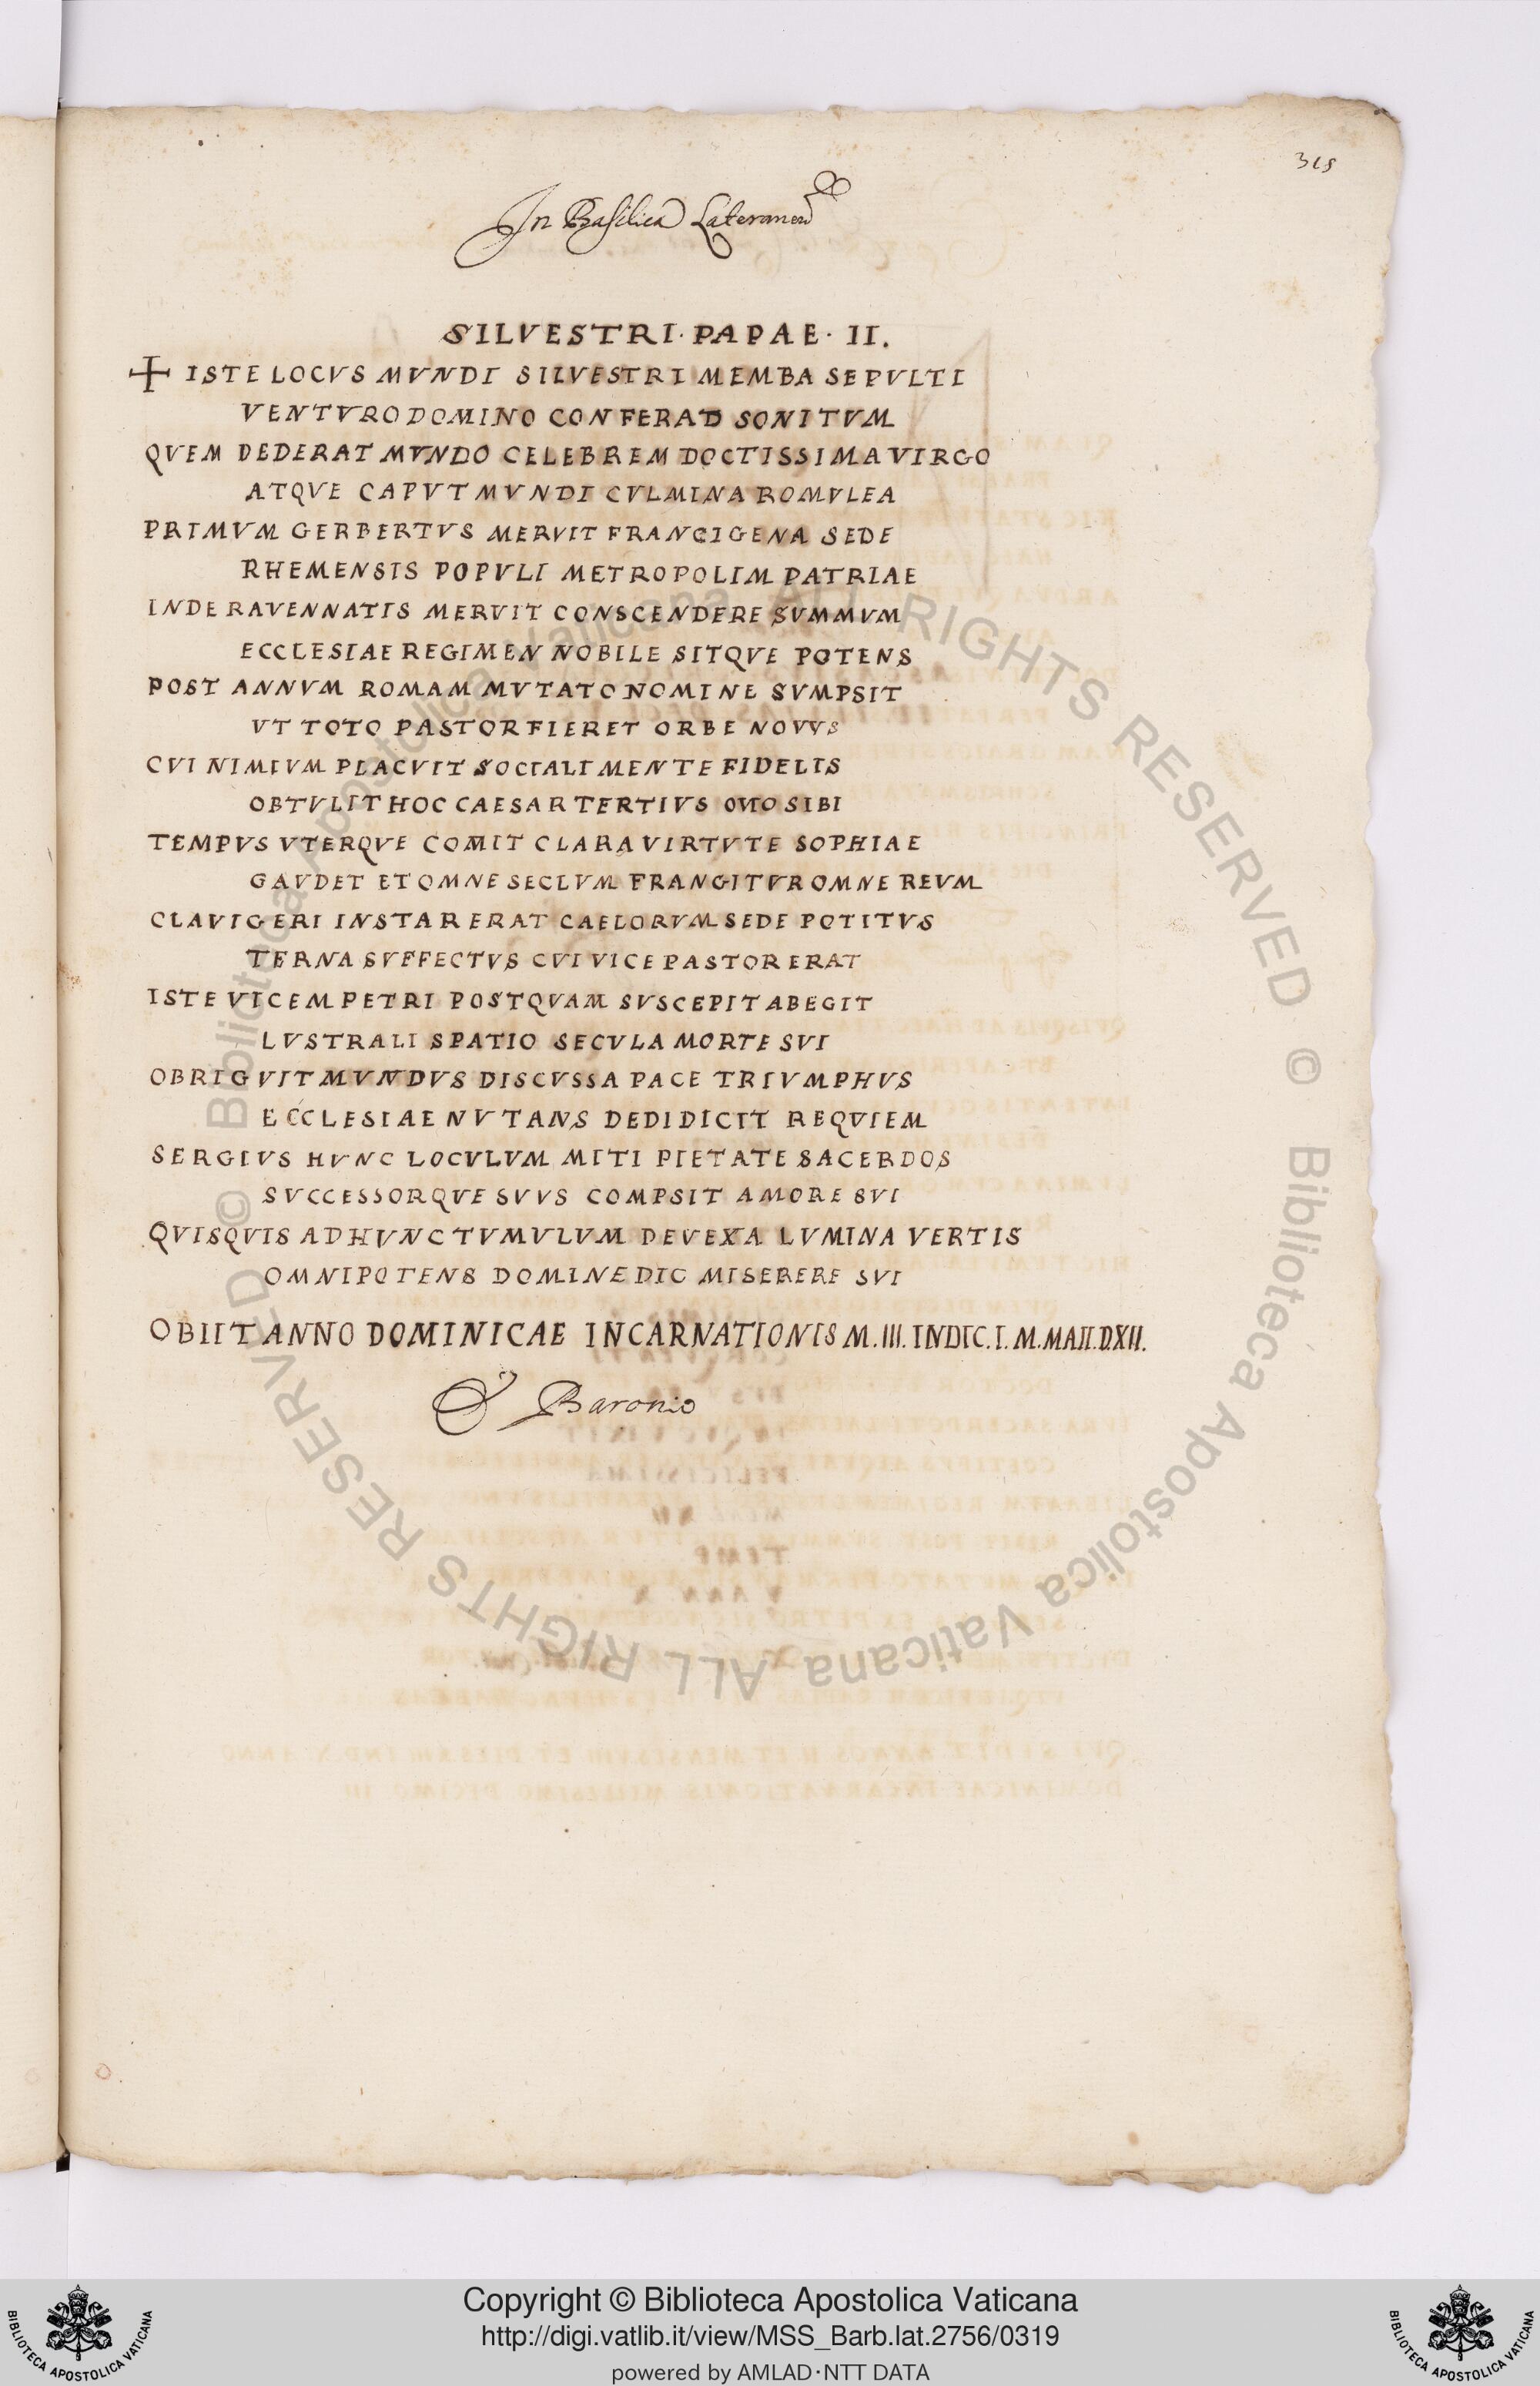 315
In Basilica Lateranen
SILVESTRI · PAPAE · II .
+ ISTE LOCVS MVNDI SILVESTRI MEMBA SEPVLTI
VENTVRO DOMINO CONFERAD SONITVM
QVEM DEDERAT MVNDO CELEBREM DOCTISSIMA VIRGO
ATQVE CAPVT MVNDI CVLMINA ROMVLEA
PRIMVM GERBERTVS MERVIT FRANCIGENA SEDE
RHEMENSIS POPVLI METROPOLIM PATRIAE
INDE RAVENNATIS MERVIT CONSCENDERE SVMMVM
ECCLESIAE REGIMEN NOBILE SITQVE POTENS
POST ANNVM ROMAM MVTATO NOMINE SVMPSIT
VT TOTO PASTOR FIERET ORBE NOVVS
CVI NIMIVM PLACVIT SOCIALI MENTE FIDELIS
OBTVLIT HOC CAESAR TERTIVS OTTO SIBI
TEMPVS VTERQVE COMIT CLARA VIRTVTE SOPHIAE
GAVDET ET OMNE SECLVM FRANGITVR OMNE REVM
CLAVIGERI INSTAR ERAT CAELORVM SEDE POTITVS
TERNA SVFFECTVS CVI VICE PASTOR ERAT
ISTE VICEM PETRI POSTQVAM SVSCEPIT ABEGIT
LVSTRALI SPATIO SECVLA MORTE SVI
OBRIGVIT MVNDVS DISCVSSA PACE TRIVMPHVS
ECCLESIAE NVTANS DEDIDICIT REQVIEM
SERGIVS HVNC LOCVLVM MITI PIETATE SACERDOS
SVCCESSORQVE SVVS COMPSIT AMORE SVI
QVISQVIS AD HVNC TVMVLVM DEVEXA LVMINA VERTIS
OMNIPOTENS DOMINE DIC MISERERE SVI
OBIIT ANNO DOMINICAE INCARNATIONIS M.III. INDIC.I.M.MAII.D.XII.
Baronio
Copyright © Biblioteca Apostolica Vaticana
http://digi.vatlib.it/view/MSS_Barb.lat.2756/0319
powered by AMLAD·NTT DATA
BIBLIOTECA APOSTOLICA VATICANA
BIBLIOTECA APOSTOLICA VATICANA
© Biblioteca Apostolica Vaticana ALL RIGHTS RESERVED © Biblioteca Apostolica Vaticana ALL RIGHTS RESERVED